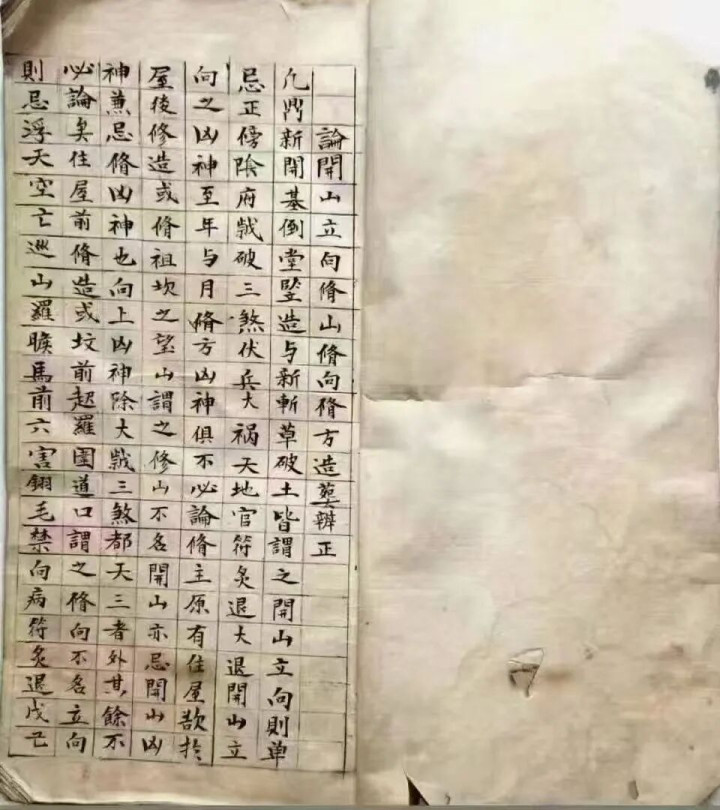 論開山立向脩山脩向脩方造葬辯正
凢鼎新開基倒堂竪造与新斬草破土皆謂之開山立向則单
忌正傍陰府戠破三煞伏兵大禍天地官符炙退大退開山立
向之凶神至年与月脩方凶神俱不必論脩主原有住屋欲扵
屋後修造或脩祖坟之望山謂之修山不名開山亦忌開山凶
神兼忌脩凶神也向上凶神除大戠三煞都天三者外其餘不
必論矣住屋前脩造或坟前起羅圍道口謂之脩向不名立向
則忌浮天空亡巡山羅睺馬前六害錋毛禁向病符炙退戊亡